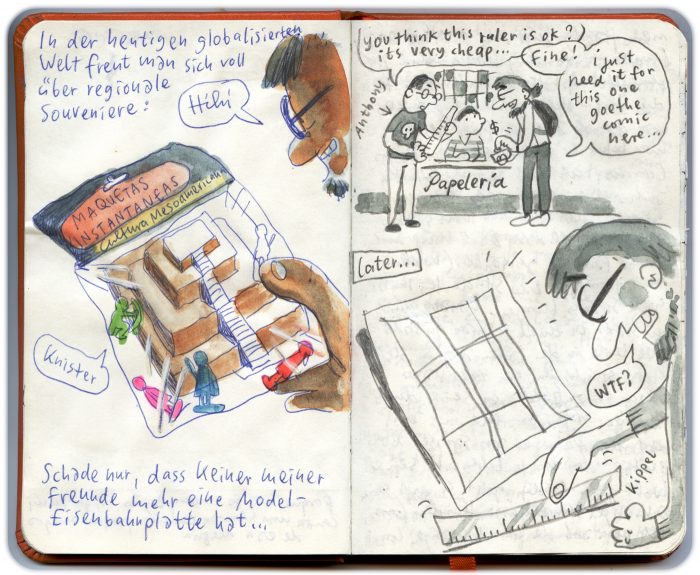 In der heutigen globalisierten
Welt freut man sich voll
über regionale
Souveniere:
Hihi
MAQUETAS
INSTANTANEAS
Cultura Mesoamerican
Knister
Schade nur, dass keiner meiner
Freunde mehr eine Model-
Eisenbahnplatte hat...
you think this ruler is ok?
its very cheap...
Fine!
i just
need it for
this one
goethe
comic
here...
Anthony
$
Papelería
Later...
WTF?
Kippel